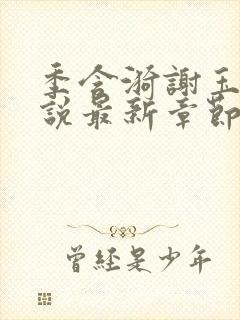 季含漪謝玉
說最新章節
曾經是少年